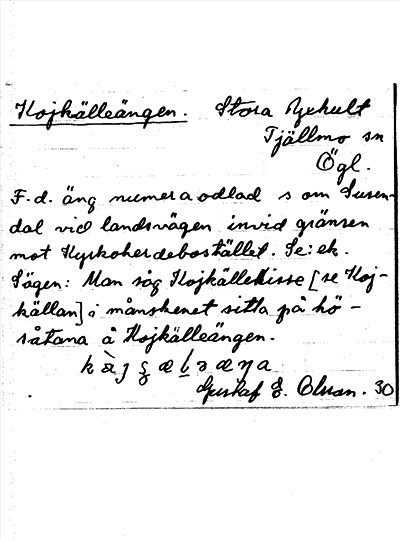 Kojkälleängen. Stora Yxhult
Tjällmo sn
Ögl.
F.d. äng numera odlad s om Susen-
dal vid landsvägen invid gränsen
mot Kyrkoherdebostället. Se: ek.
Sägen: Man såg Kojkällekisse [se Koj-
källan] i månskenet sitta på hö-
såtana å Kojkälleängen.
Gustaf E. Olsson. 30